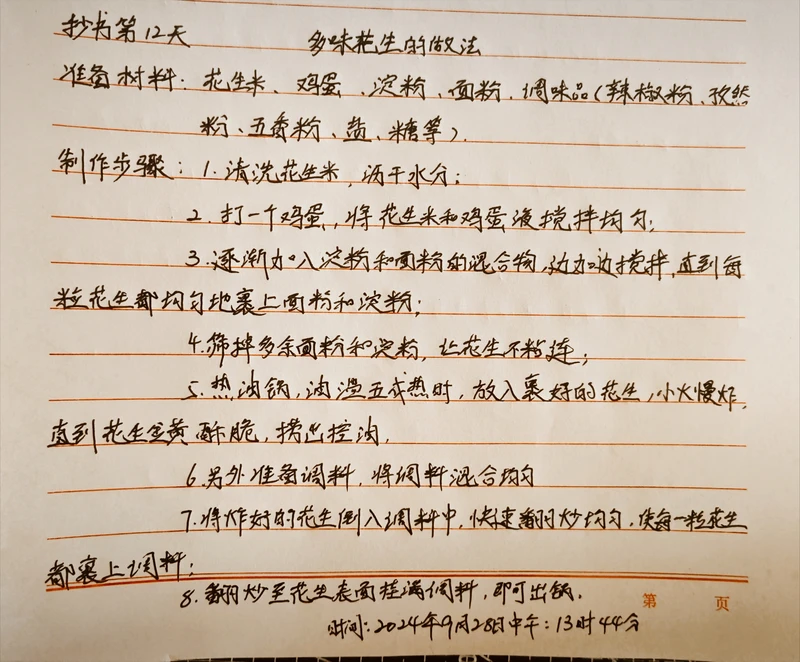 抄书第12天 多味花生的做法
准备材料：花生米、鸡蛋、淀粉、面粉、调味品(辣椒粉、孜然
粉、五香粉、盐、糖等)。
制作步骤：1.清洗花生米，沥干水分；
2.打一个鸡蛋，将花生米和鸡蛋液搅拌均匀；
3.逐渐加入淀粉和面粉的混合物，边加边搅拌，直到每
粒花生都均匀地裹上面粉和淀粉；
4.筛掉多余面粉和淀粉，让花生不粘连；
5.热油锅，油温五成热时，放入裹好的花生，小火慢炸，
直到花生金黄酥脆，捞出控油。
6.另外准备调料，将调料混合均匀
7.将炸好的花生倒入调料中，快速翻炒均匀，使每一粒花生
都裹上调料；
8.翻炒至花生表面挂满调料，即可出锅。
第 页
时间：2024年9月28日中午：13时44分